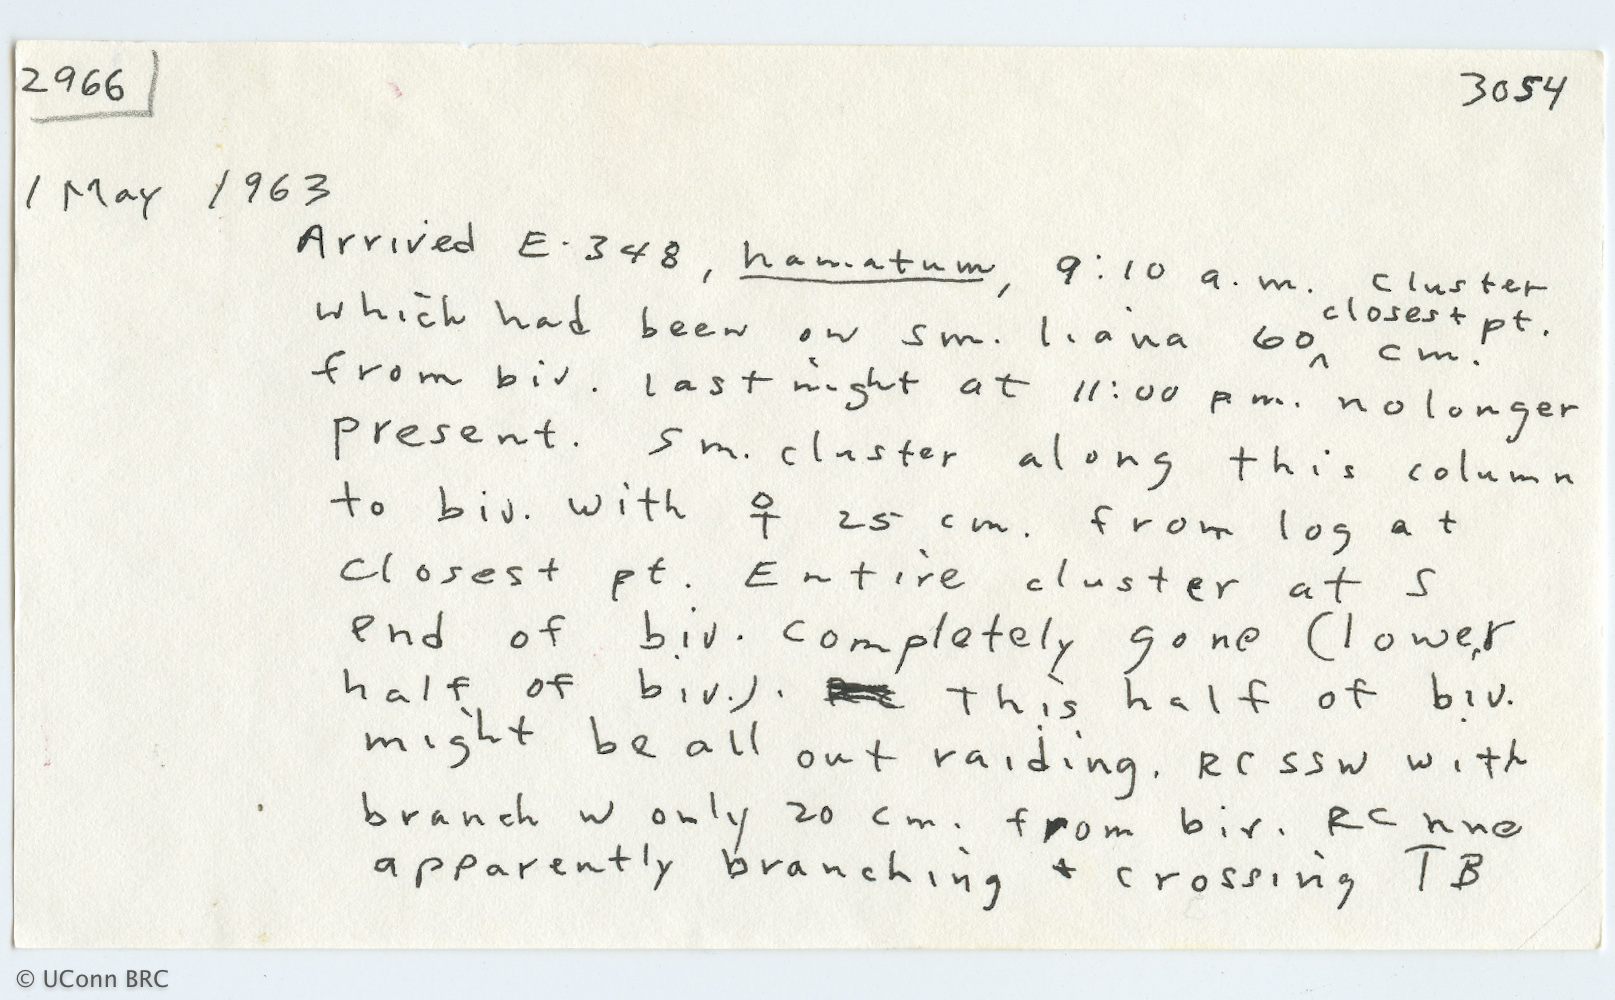 2966
3054
1 May 1963
Arrived E-348, hamatum, 9:10 a.m. cluster
which had been on sm. liana 60 closest pt. cm.
from biv. last night at 11:00 p.m. no longer
present. Sm. cluster along this column
to biv. with ♀ 25 cm. from log at
closest pt. Entire cluster at S
end of biv. completely gone (lower
half of biv.). This half of biv.
might be all out raiding. RC SSW with
branch W only 20 cm. from biv. RC nne
apparently branching + crossing TB
© UConn BRC